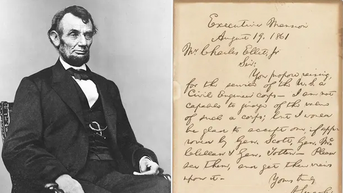 Executive Mansion
August 19, 1861
Mr Charles Ellet, Jr
Sir:
You propose raising,
for the service of the U.S. a
Civil Engineer corps— I am not
capable to judge of the value
of such a corps; but I would
be glad to accept one, if approved
by Gen. Scott, Gen. Mc
Clellan & Gen. Totten— Please
see them, and get their views
upon it—
Yours truly
A. Lincoln